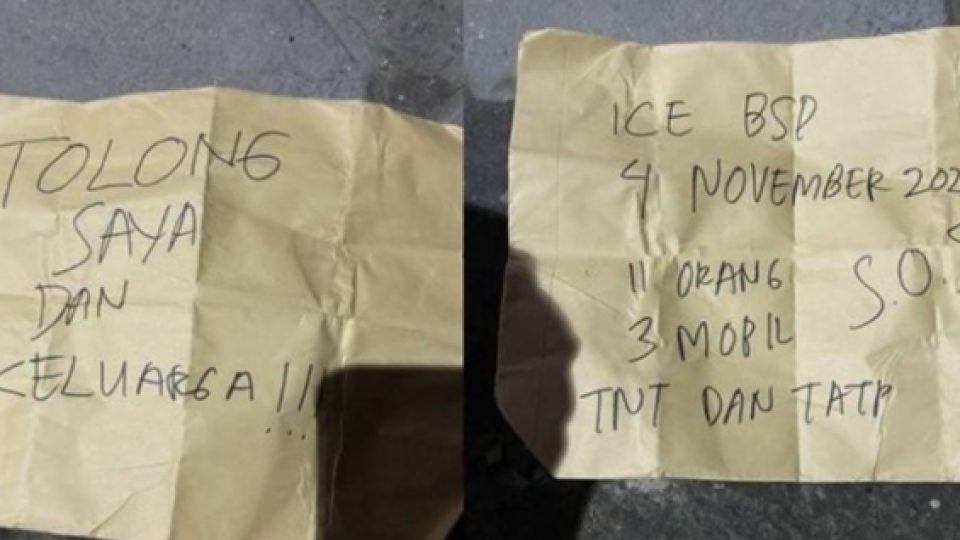 TOLONG
SAYA
DAN
KELUARGA !!!
ICE BSP
4 NOVEMBER 202
11 ORANG S.O.
3 MOBIL
TNT DAN TATP